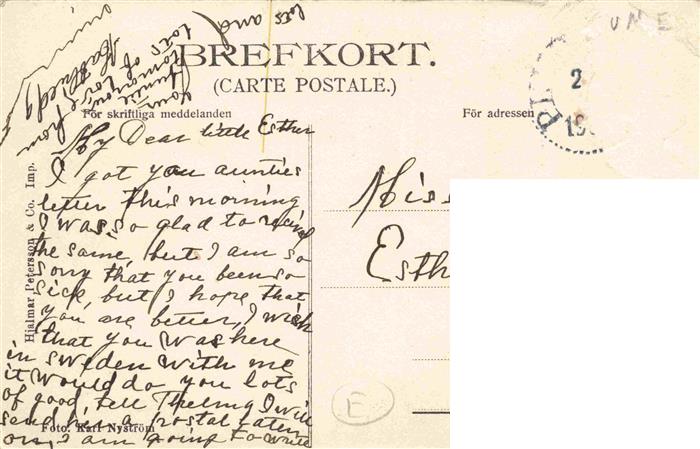 BREFKORT.
(CARTE POSTALE.)
För skriftliga meddelanden
För adressen
My Dear little Esther
I got you aunties
letter this morning
I was so glad to
the same, but I am so
sorry that you been so
sick, but I hope that
you are better, I wish
that you was here
in Sweden with me
it would do you lots
of good, tell I will
send her a postal later
on, I am going to write
lots and
lots of
from
Miss
Esth
E
UME
2
19
Hjalmar Petersson & Co. Imp.
Foto. Karl Nyström